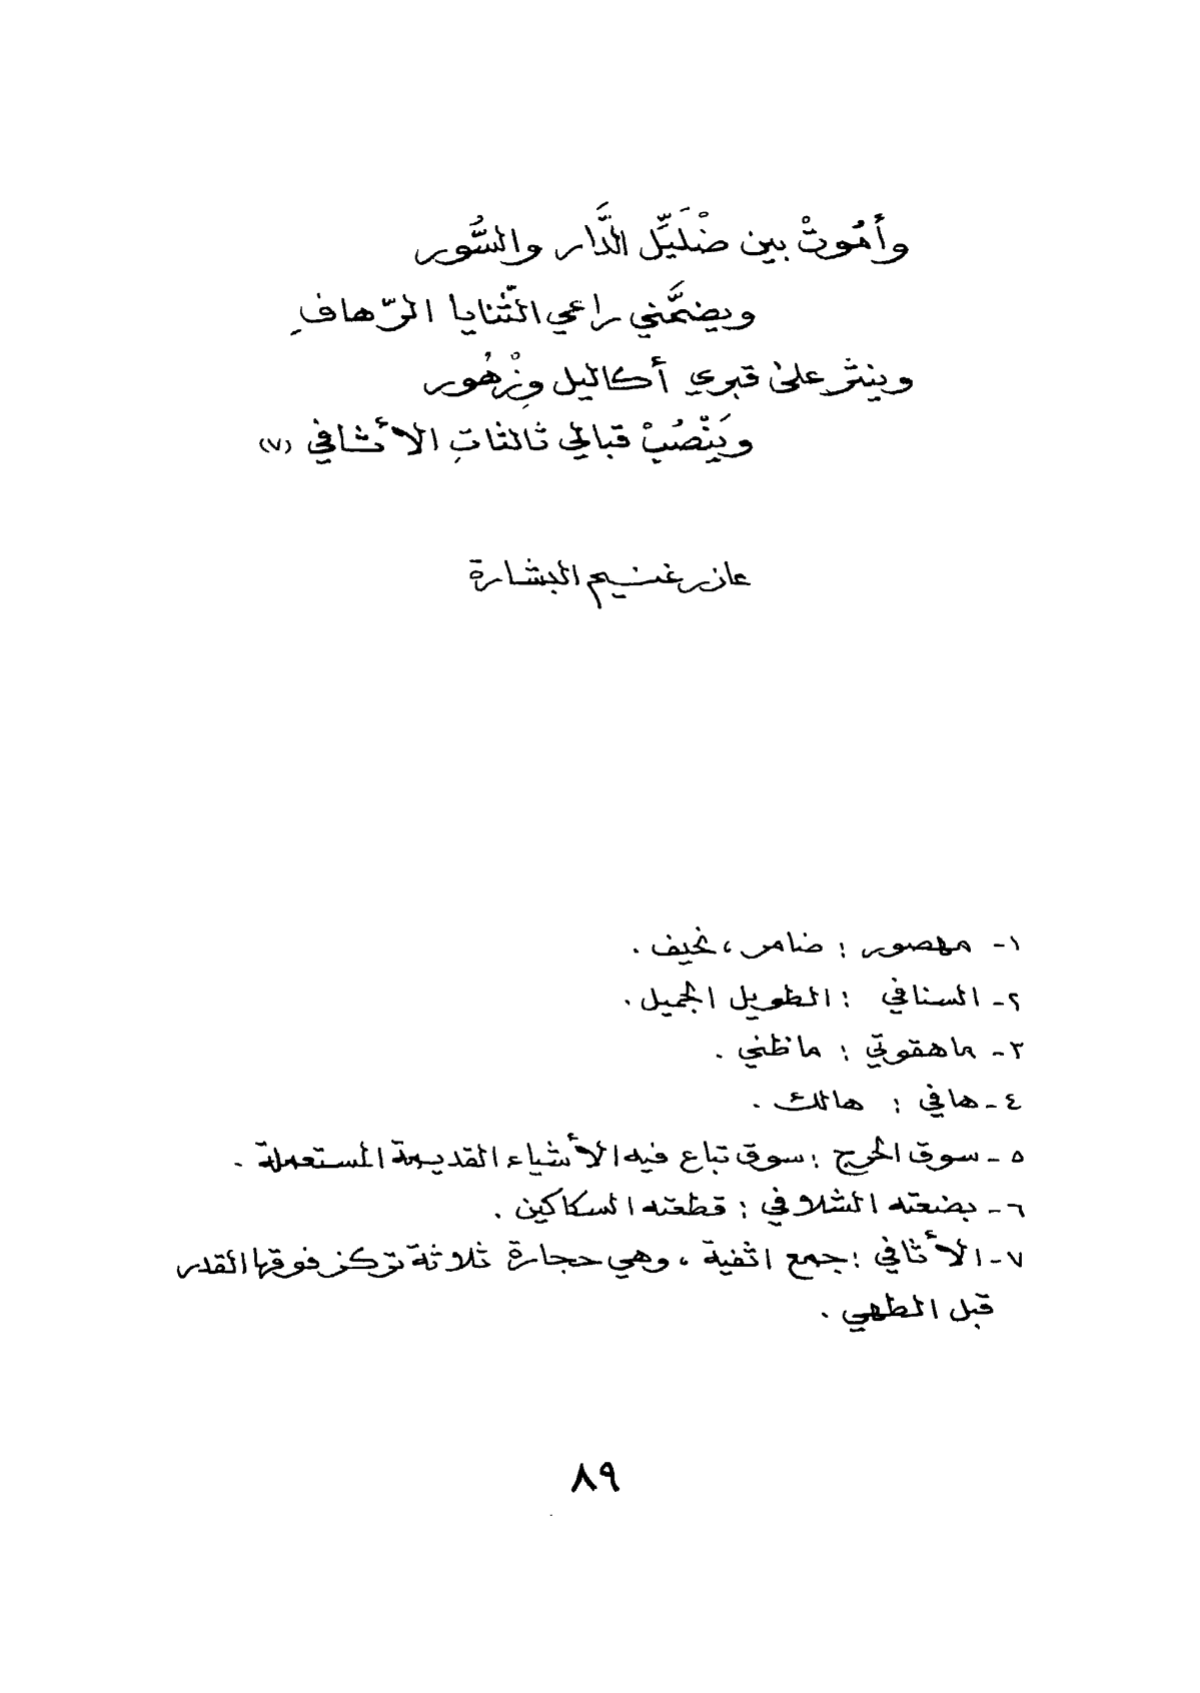 وأمُوتْ بين ضْلَيِّل الدَّار والسُّور
ويضمَّني راعي الثّنايا الرّهافِ
وينثر على قبري أكاليل وِزْهُور
ويَنْصُبْ قبالي ثالثاتِ الأثافي (٧)
عازر غنيم البشارة
١- مهصور : ضامر ، نحيف .
٢- السنافي : الطويل الجميل .
٣- ماهقوتي : ماظني .
٤- هافي : هالك .
٥- سوق الحرج : سوق تباع فيه الأشياء القديمة المستعملة .
٦- بضعته الشلافي : قطعته السكاكين .
٧- الأثافي : جمع اثفية ، وهي حجارة ثلاثة تركز فوقها القدر
قبل الطهي .
٨٩